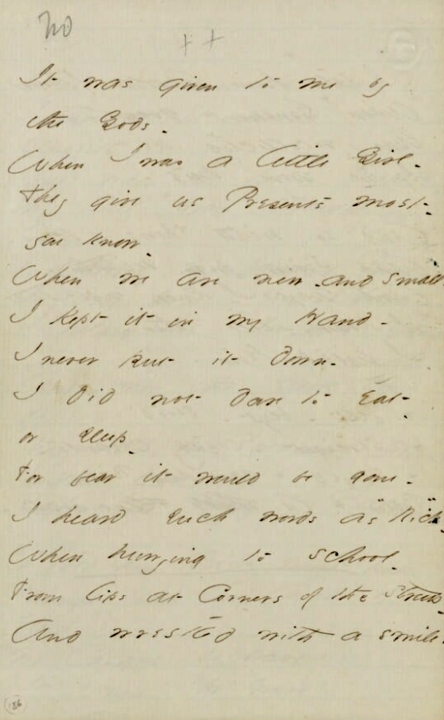 No
+ +
It was given to me by
the Gods -
When I was a little Girl -
They give us Presents most -
you know -
When we are new - and small.
I kept it in my Hand -
I never put it down -
I did not dare to eat -
or sleep -
For fear it would be gone -
I heard such words as "Rich"
When hurrying to school -
From lips at Corners of the Streets -
And wrestled with a smile.
186